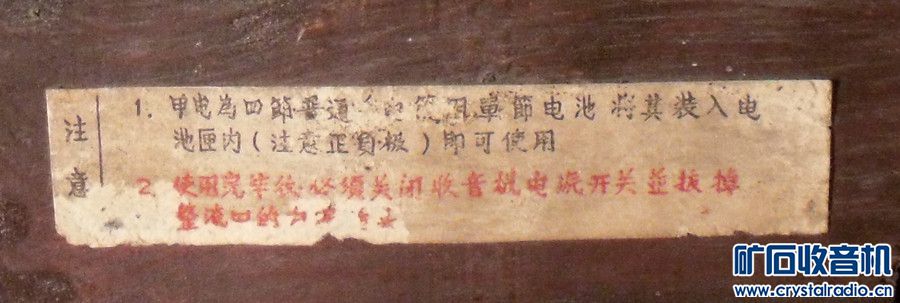 注意
1. 甲电為四節普通 電筒用單節电池 将其装入电
池匣内(注意正負极)即可使用
2. 使用完毕後必须关闭收音机电源开关並拔掉
整流
矿石收音机
www.crystalradio.cn